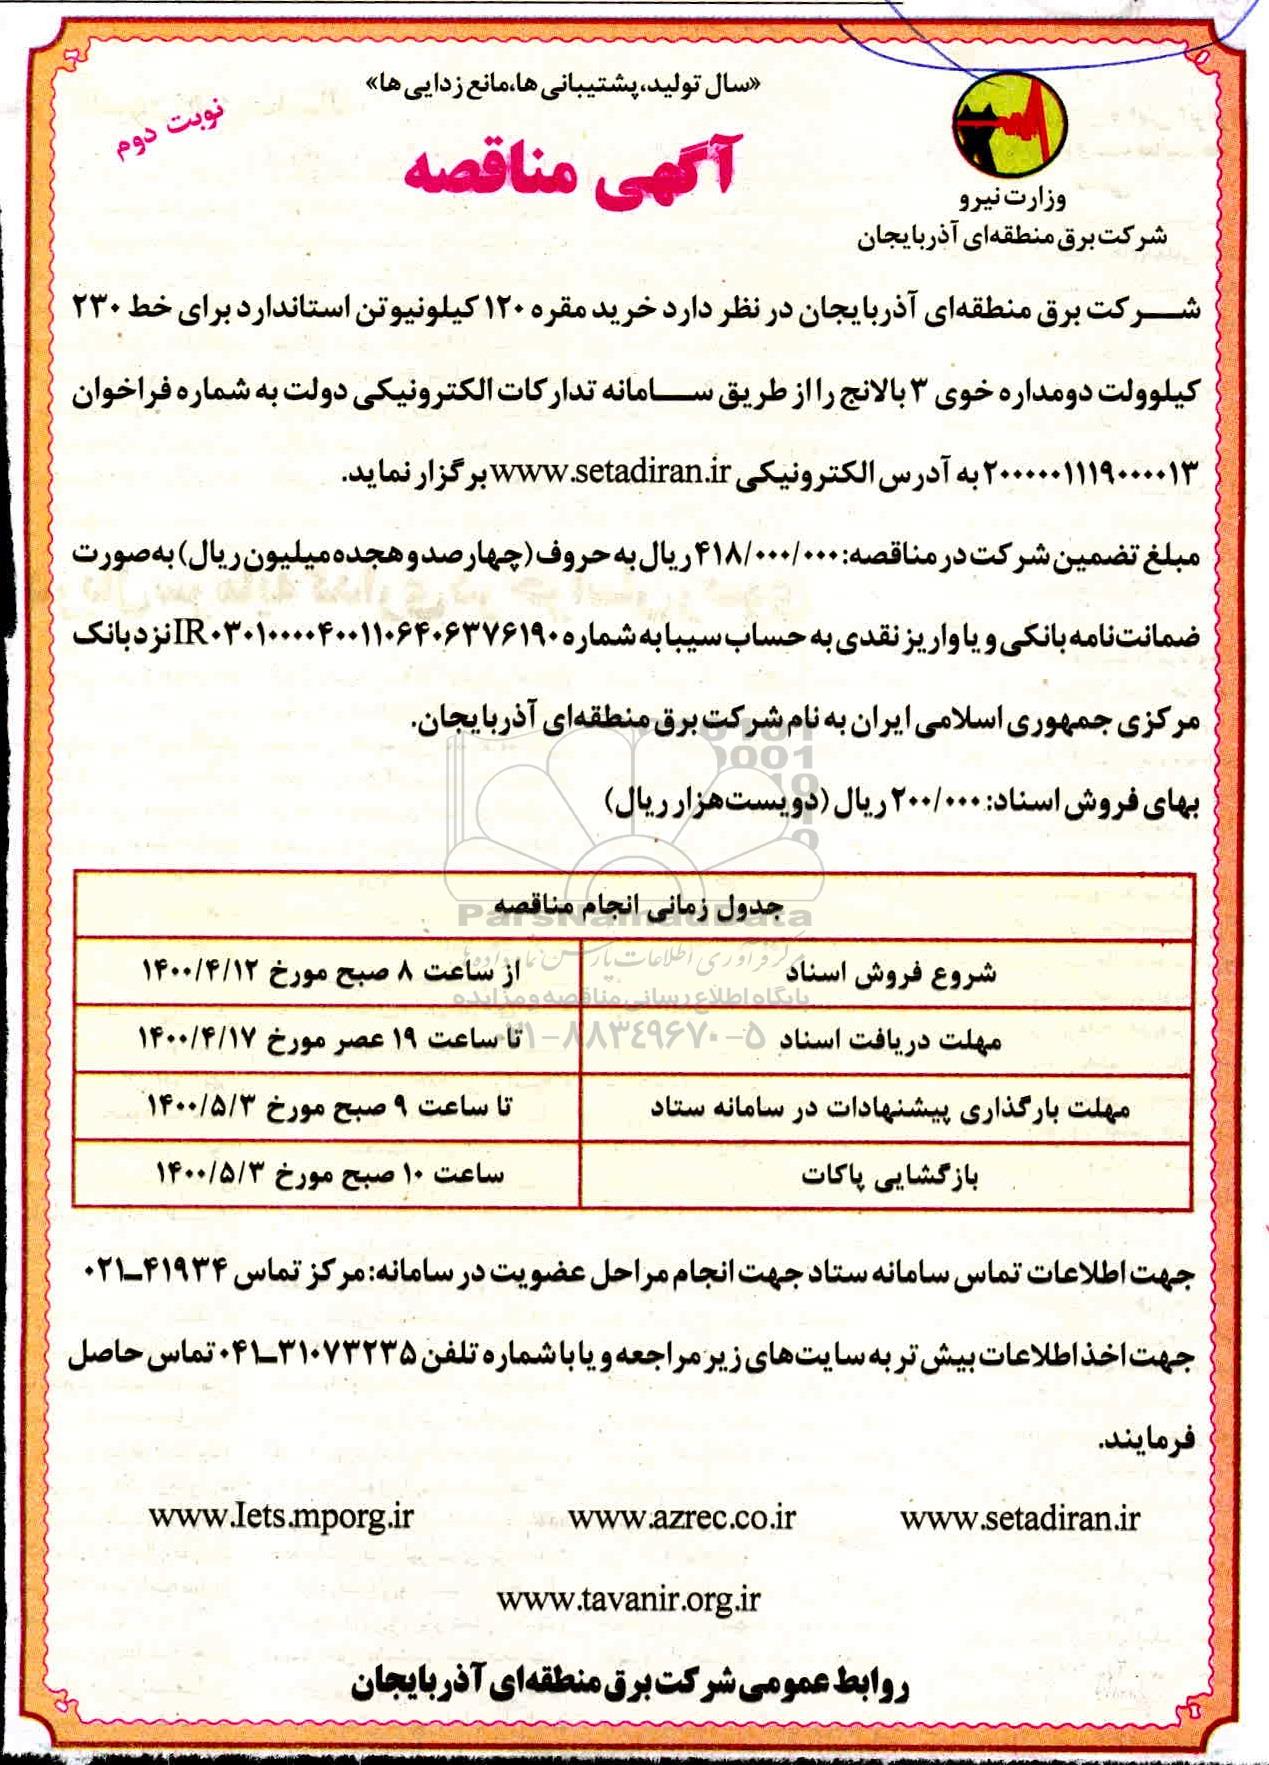 «سال تولید، پشتیبانی ها، مانع زدایی ها»
نوبت دوم
آگهی مناقصه
وزارت نیرو
شرکت برق منطقه‌ای آذربایجان
شرکت برق منطقه‌ای آذربایجان در نظر دارد خرید مقره ۱۲۰ کیلونیوتن استاندارد برای خط ۲۳۰
کیلوولت دومداره خوی ۳ بالانج را از طریق سامانه تدارکات الکترونیکی دولت به شماره فراخوان
۲۰۰۰۰۰۱۱۱۹۰۰۰۰۱۳ به آدرس الکترونیکی www.setadiran.ir برگزار نماید.
مبلغ تضمین شرکت در مناقصه: ۴۱۸/۰۰۰/۰۰۰ ریال به حروف (چهارصد و هجده میلیون ریال) به صورت
ضمانت‌نامه بانکی و یا واریز نقدی به حساب سیبا به شماره IR۰۳۰۱۰۰۰۰۴۰۰۱۱۰۶۴۰۶۳۷۶۱۹۰ نزد بانک
مرکزی جمهوری اسلامی ایران به نام شرکت برق منطقه‌ای آذربایجان.
بهای فروش اسناد: ۲۰۰/۰۰۰ ریال (دویست هزار ریال)
جدول زمانی انجام مناقصه
ParsNamadData
شروع فروش اسناد از ساعت ۸ صبح مورخ ۱۴۰۰/۴/۱۲
پایگاه اطلاع رسانی مناقصه و مزایده
مهلت دریافت اسناد تا ساعت ۱۹ عصر مورخ ۱۴۰۰/۴/۱۷
۰۲۱-۸۸۳۴۹۶۷۰-۵
مهلت بارگذاری پیشنهادات در سامانه ستاد تا ساعت ۹ صبح مورخ ۱۴۰۰/۵/۳
بازگشایی پاکات ساعت ۱۰ صبح مورخ ۱۴۰۰/۵/۳
جهت اطلاعات تماس سامانه ستاد جهت انجام مراحل عضویت در سامانه: مرکز تماس ۴۱۹۳۴ـ۰۲۱
جهت اخذ اطلاعات بیش‌تر به سایت‌های زیر مراجعه و یا با شماره تلفن ۳۱۰۷۳۲۳۵ـ۰۴۱ تماس حاصل
فرمایند.
www.setadiran.ir www.azrec.co.ir www.Iets.mporg.ir
www.tavanir.org.ir
روابط عمومی شرکت برق منطقه‌ای آذربایجان